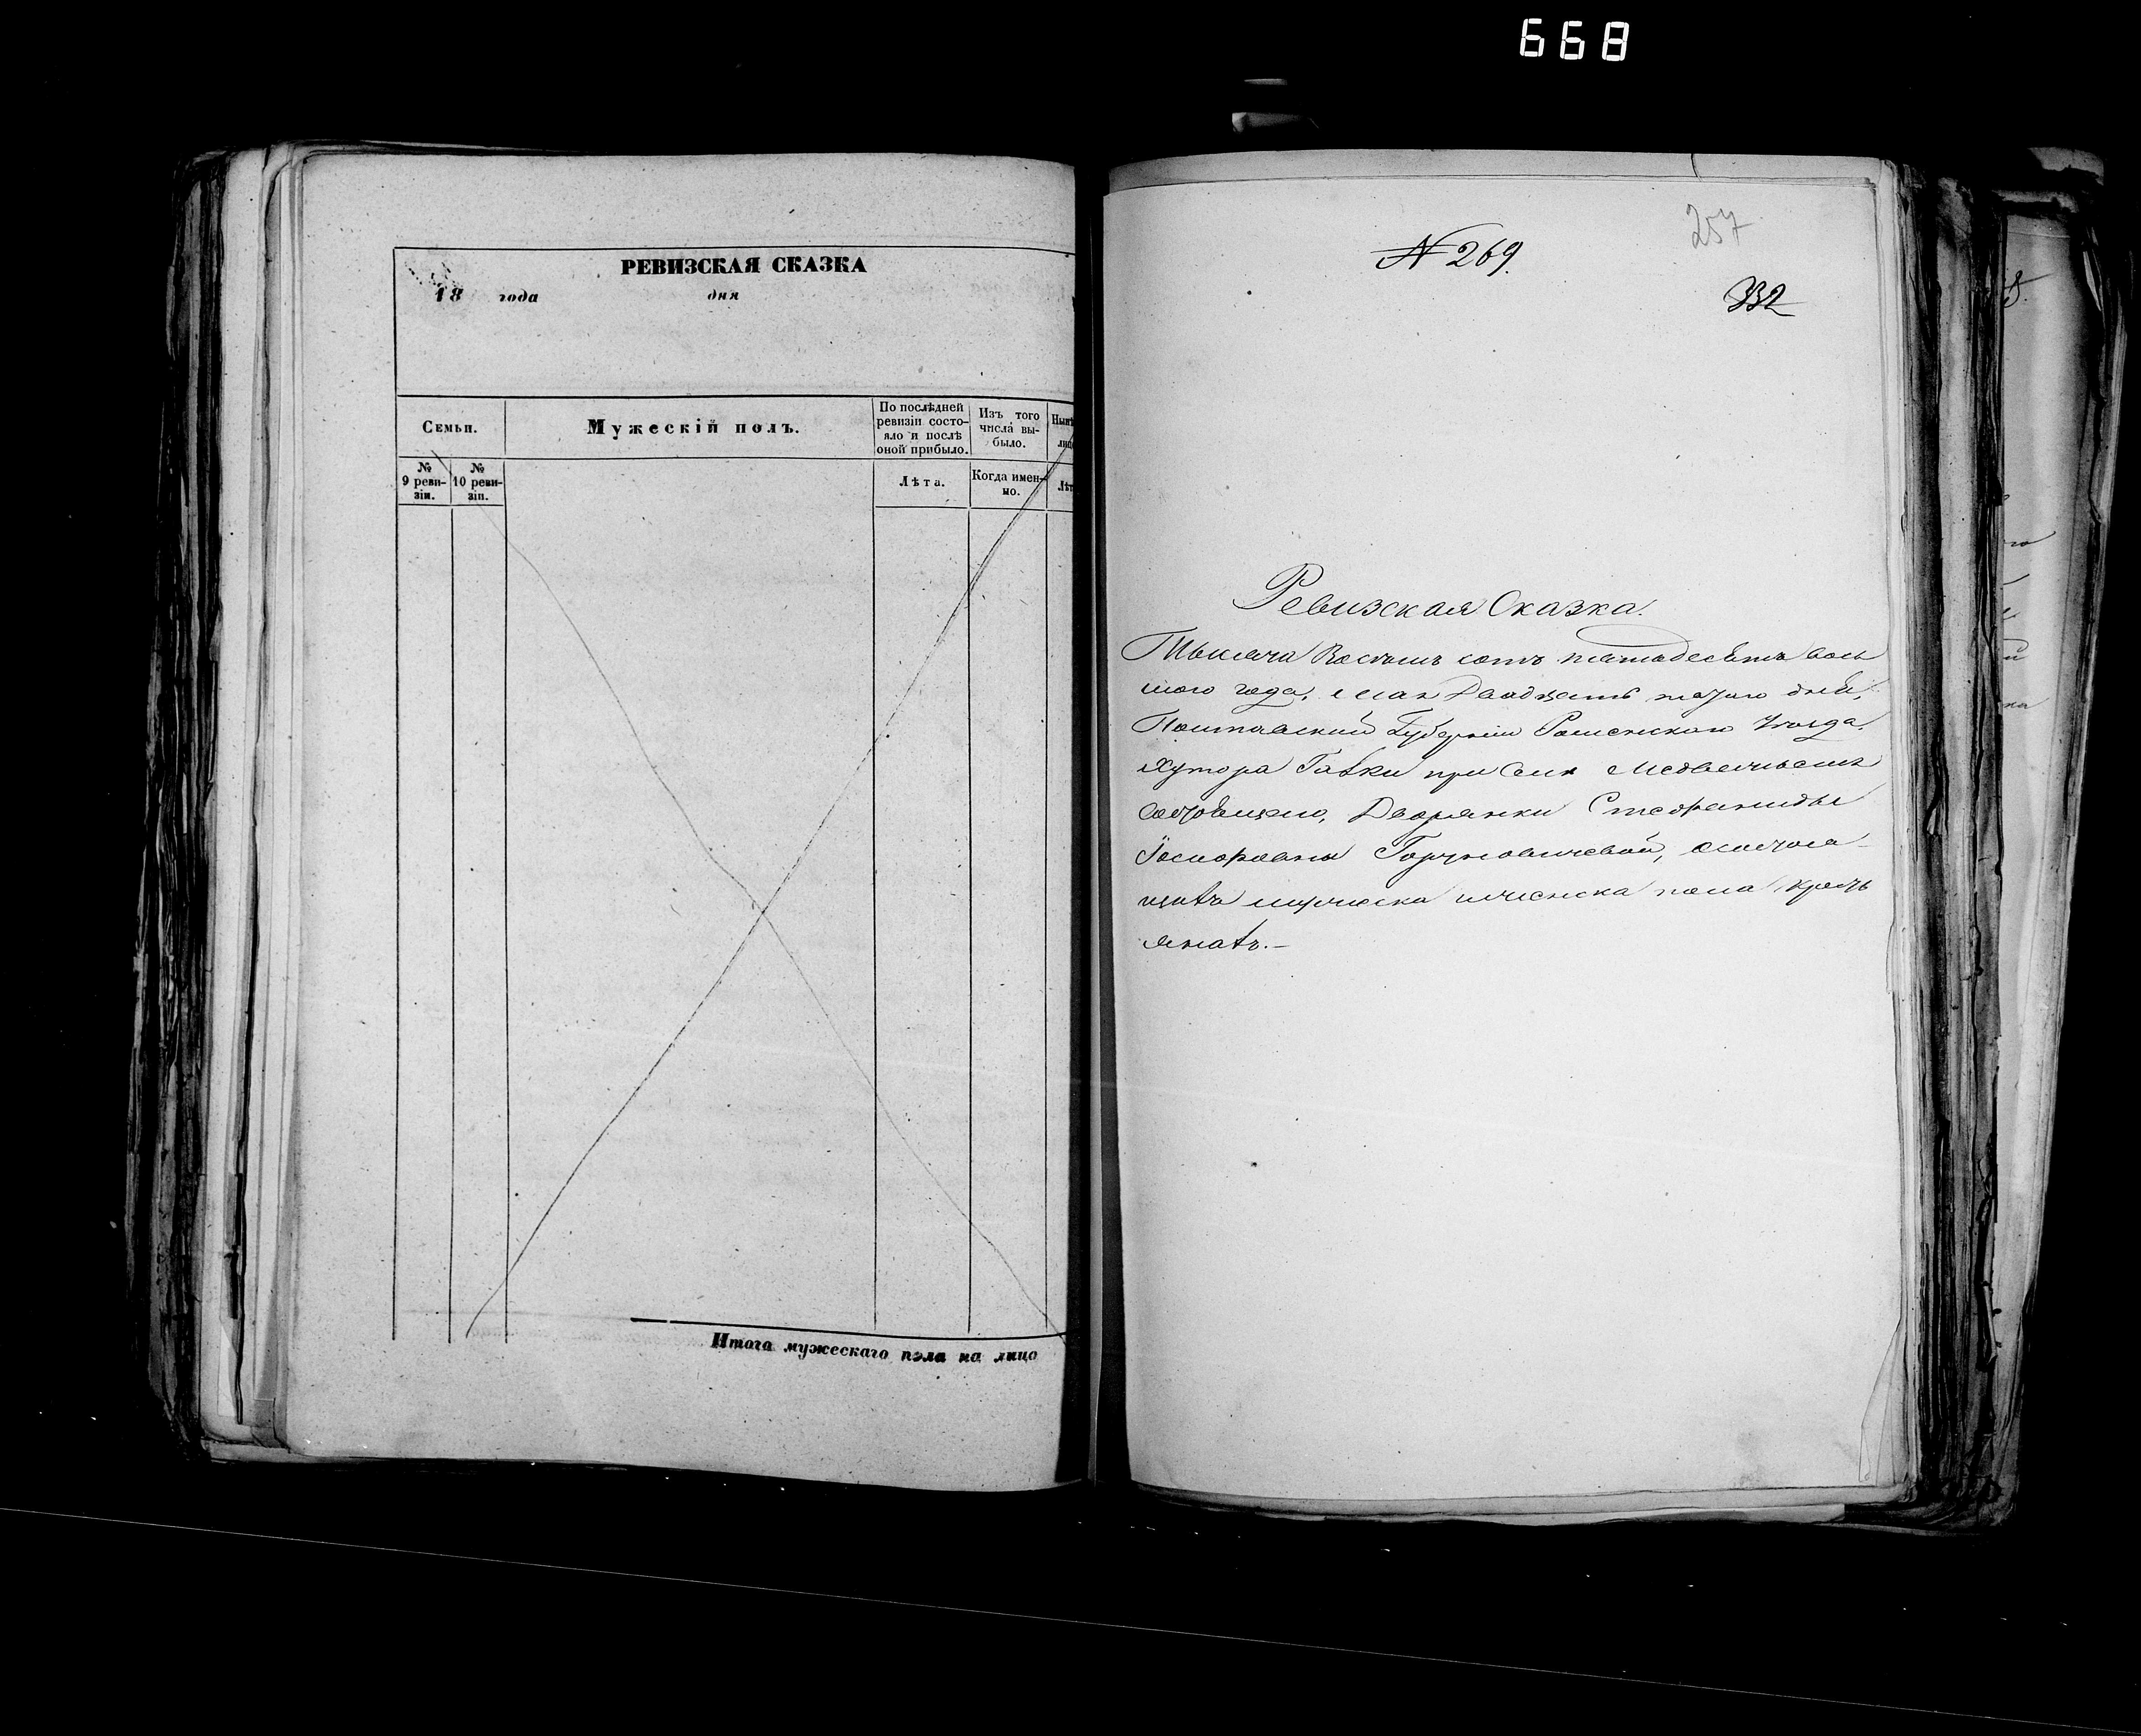 668
РЕВИЗСКАЯ СКАЗКА
18 года дня
Семьи.
Мужескій полъ.
По послѣдней ревизіи состо-
яло и послѣ
оной прибыло.
Изъ того
числа вы-
было.
№
9 реви-
зіи.
№
10 реви-
зіи.
Лѣта.
Когда имен-
но.
Итого мужескаго пола на лицо
257
N 269.
332
Ревизская Сказка.
Тысяча Восемь сотъ пятьдесятъ вось
мого года, мая Двадцать дня,
Полтавской Губерніи Роменскаго уезда,
Хутора Гавки при Селе
Дворянки Стефаниды
Горуновичевой, о состоя
щихъ мужеска и женска пола крест
янахъ.—